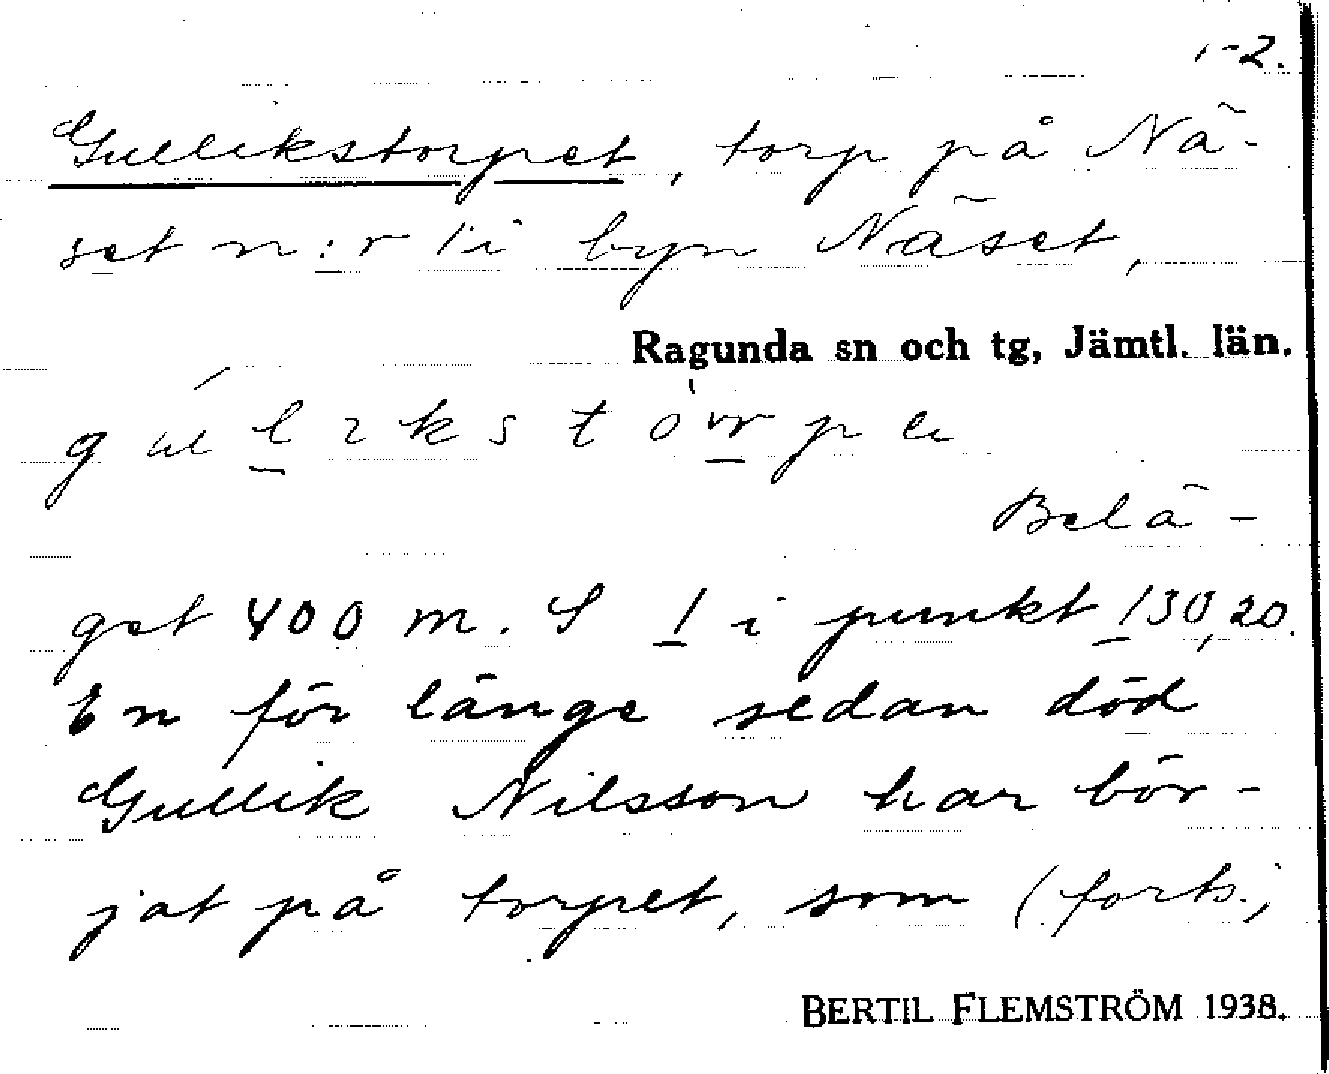 1-2.
Gullikstorpet, torp på Nä-
set n:r 1 i byn Näset,
Ragunda sn och tg, Jämtl. län.
Belä-
get 400 m. S 1 i punkt 130,20.
En för länge sedan död
Gullik Nilsson har bör-
jat på torpet, som (forts.)
BERTIL FLEMSTRÖM 1938.